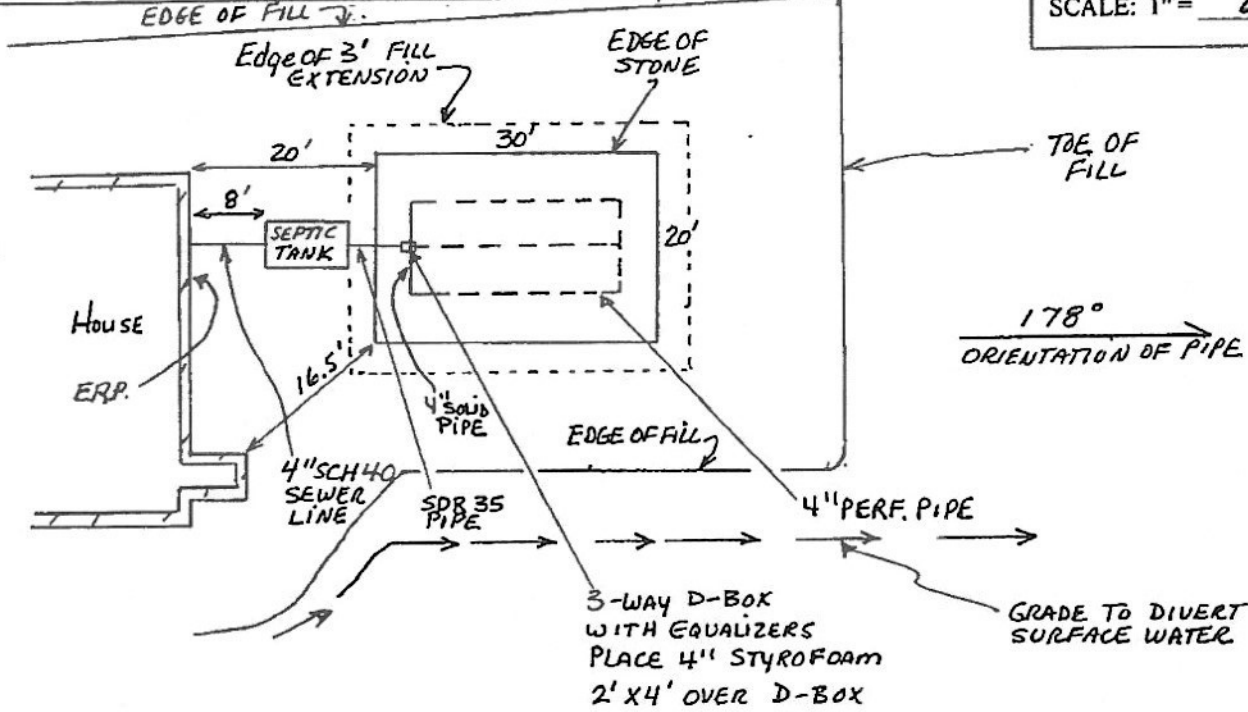 EDGE OF FILL
SCALE: 1" =
Edge OF 3' FILL
EXTENSION
EDGE OF
STONE
30'
20'
TOE OF
FILL
8'
SEPTIC
TANK
20'
HOUSE
178°
ORIENTATION OF PIPE
E.R.P.
16.5'
4" SOLID
PIPE
EDGE OF FILL
4" SCH 40
SEWER
LINE
SDR 35
PIPE
4" PERF. PIPE
3-WAY D-BOX
WITH EQUALIZERS
PLACE 4" STYROFOAM
2' X 4' OVER D-BOX
GRADE TO DIVERT
SURFACE WATER